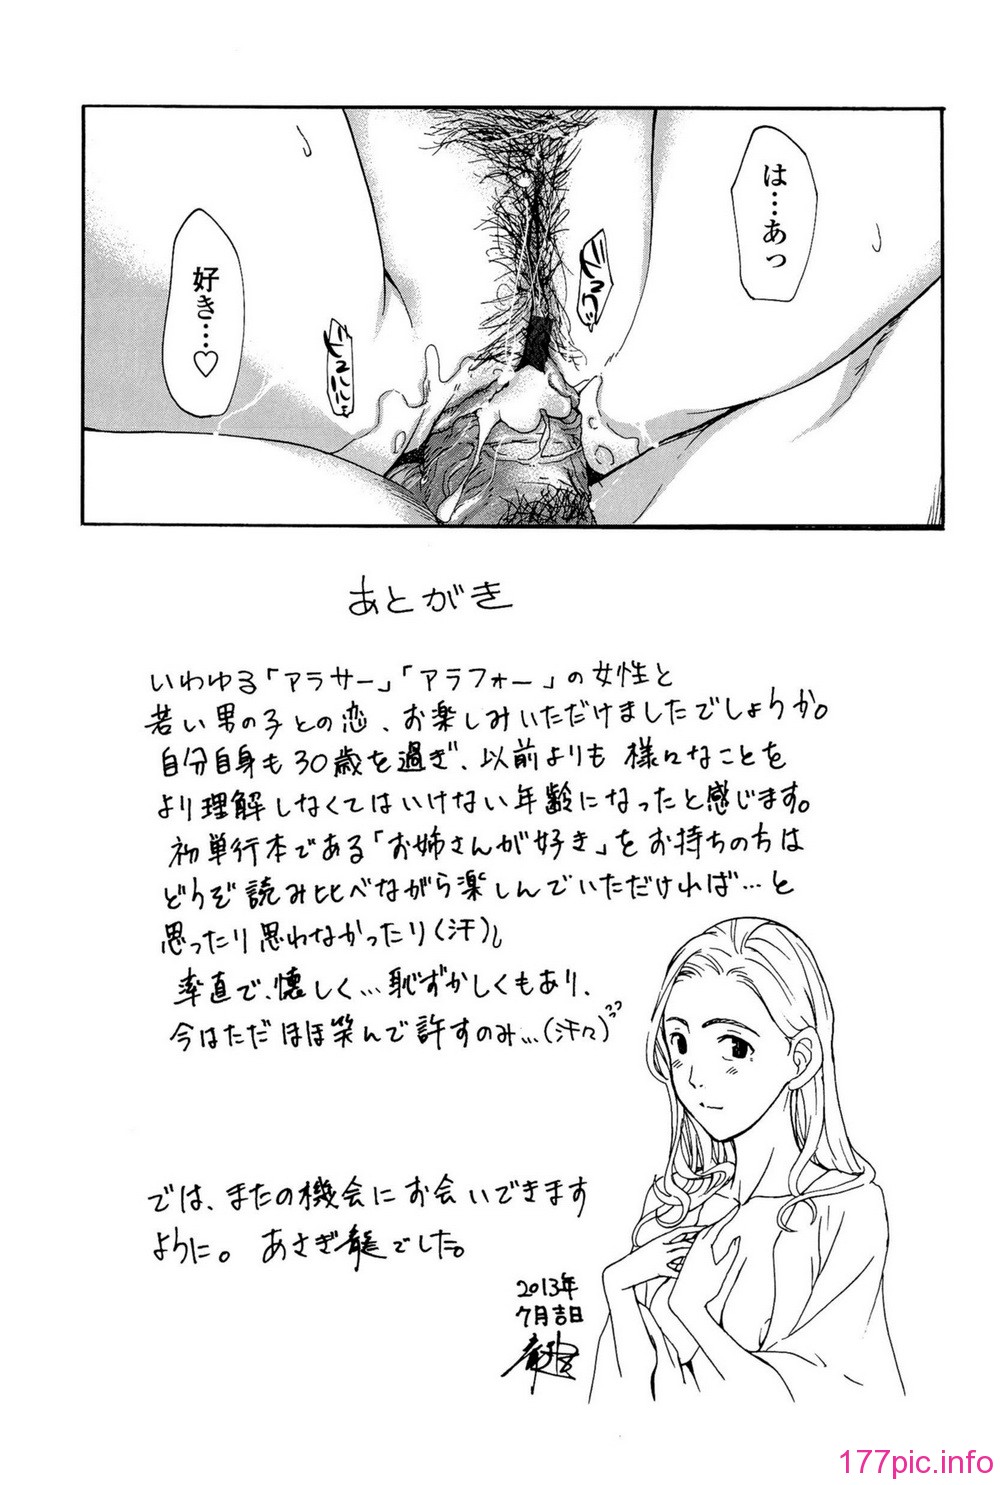 は…あっ
好き…♡
あとがき
いわゆる「アラサー」「アラフォー」の女性と
若い男の子との恋、お楽しみいただけましたでしょうか。
自分自身も30歳を過ぎ、以前よりも様々なことを
より理解しなくてはいけない年齢になったと感じます。
初単行本である「お姉さんが好き」をお持ちの方は
どうぞ読み比べながら楽しんでいただければ…と
思ったり思わなかったり(汗)。
率直で、懐しく…恥ずかしくもあり、
今はただほほ笑んで許すのみ…(汗々)
では、またの機会にお会いできます
ように。あさぎ龍でした。
2013年
7月吉日
177pic.info